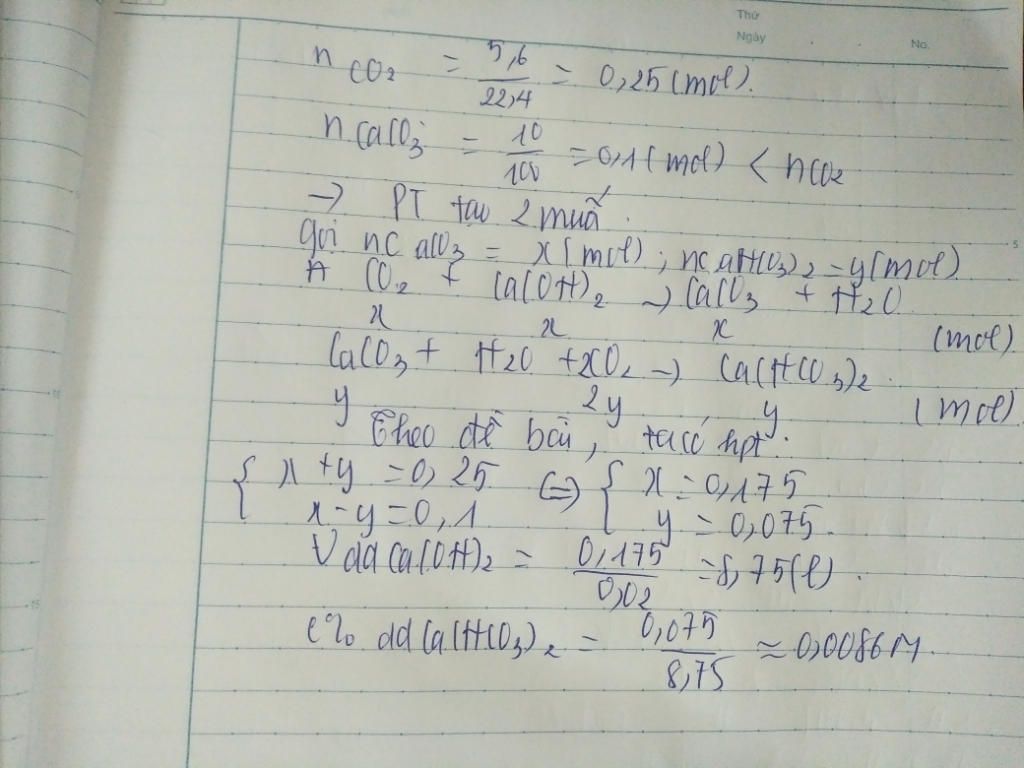 Thứ
Ngày . . No.
n CO₂ = 5,6/22,4 = 0,25 (mol).
n CaCO₃ = 10/100 = 0,1 (mol) < nCO₂
→ PT tạo 2 muối.
gọi nCaCO₃ = x (mol) ; nCa(HCO₃)₂ = y (mol)
CO₂ + Ca(OH)₂ → CaCO₃ + H₂O
x x x (mol)
CaCO₃ + H₂O + CO₂ → Ca(HCO₃)₂.
y 2y y (mol)
Theo đề bài, ta có hpt:
{ x + y = 0,25 ⇔ { x = 0,175
x - y = 0,1 y = 0,075.
V dd Ca(OH)₂ = 0,175/0,02 = 8,75 (l).
C% dd Ca(HCO₃)₂ = 0,075/8,75 ≈ 0,0086M.